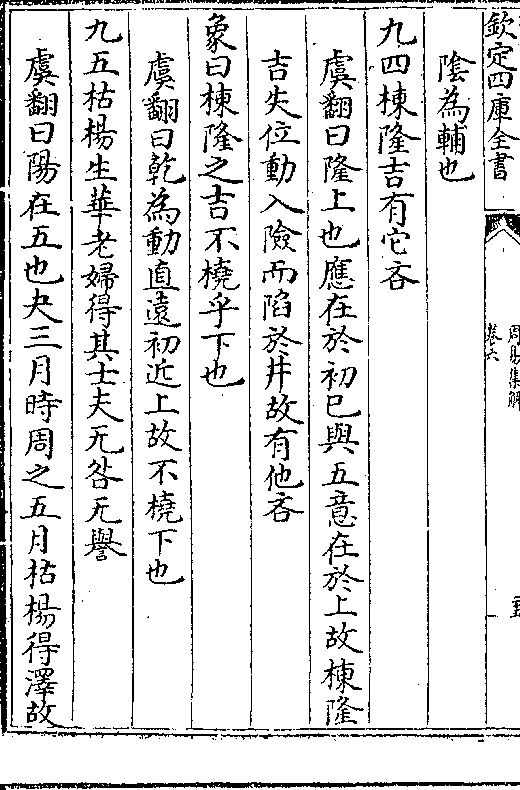 欽定四庫全書
周易集解
卷六
陰為輔也
九四棟隆吉有它吝
虞翻曰隆上也應在於初已與五意在於上故棟隆
吉失位動入險而陷於井故有他吝
象曰棟隆之吉不橈乎下也
虞翻曰乾為動直遠初近上故不橈下也
九五枯楊生華老婦得其士夫无咎无譽
虞翻曰陽在五也夬三月時周之五月枯楊得澤故